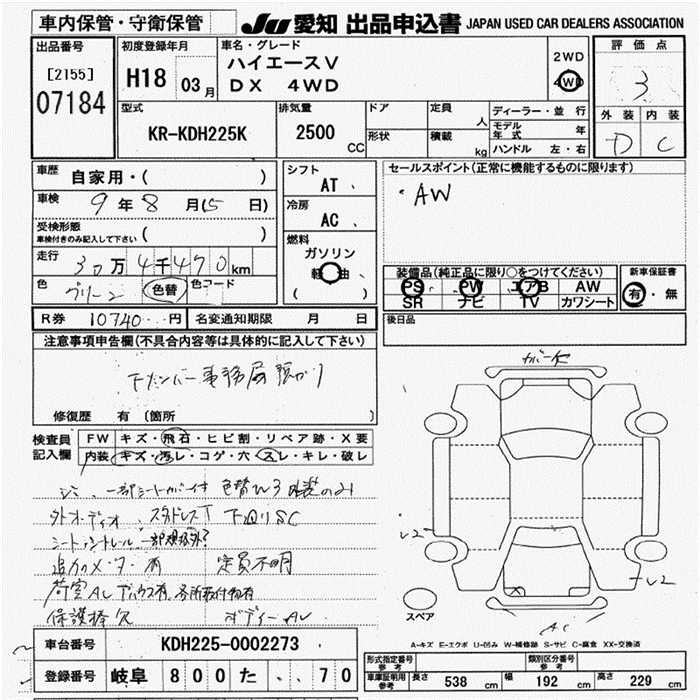 車内保管・守衛保管 JU 愛知 出品申込書 JAPAN USED CAR DEALERS ASSOCIATION
出品番号 初度登録年月 車名・グレード 評価点
[2155] H18 03月 ハイエースV 2WD 3
07184 DX 4WD 4WD
外装 内装
D C
型式 排気量 ドア 定員 人 ディーラー・並行
KR-KDH225K 2500 CC 形状 積載 kg モデル年式 年
ハンドル 左・右
車歴 自家用・( ) シフト AT セールスポイント(正常に機能するものに限ります)
車検 9年8月(5日) 冷房 AC ・AW
受検形態 ( )
車検付きのみ記入して下さい
燃料 ガソリン 軽油 ( )
走行 30万4千470km
色 グリーン 色替 色コード
装備品(純正品に限り○をつけてください) 新車保証書
PS PW エアB AW 有・無
SR ナビ TV カワシート
R券 10740円 名変通知期限 月 日 後日品
注意事項申告欄(不具合内容等は具体的に記入して下さい)
下ナンバー事務局預かり
カバーキ
修復歴 有 〔箇所 〕
検査員記入欄 FW キズ・飛石・ヒビ割・リペア跡・X要
内装 キズ・汚レ・コゲ・穴・スレ・キレ・破レ
一部シートカバー付 色替W3 外装のみ
外オーディオ スタッドレスT 下廻りSC
追加メーター有 定員不明
保護棒欠 ボディーAU
U2
U2
スペア
AC
A-キズ E-エクボ U-凹み W-補修跡 S-サビ C-腐食 XX-交換済
車台番号 KDH225-0002273
登録番号 岐阜 800 た ..70
形式指定番号 参考 類別区分番号 参考
車庫証明用 参考 長さ 538 cm 幅 192 cm 高さ 229 cm